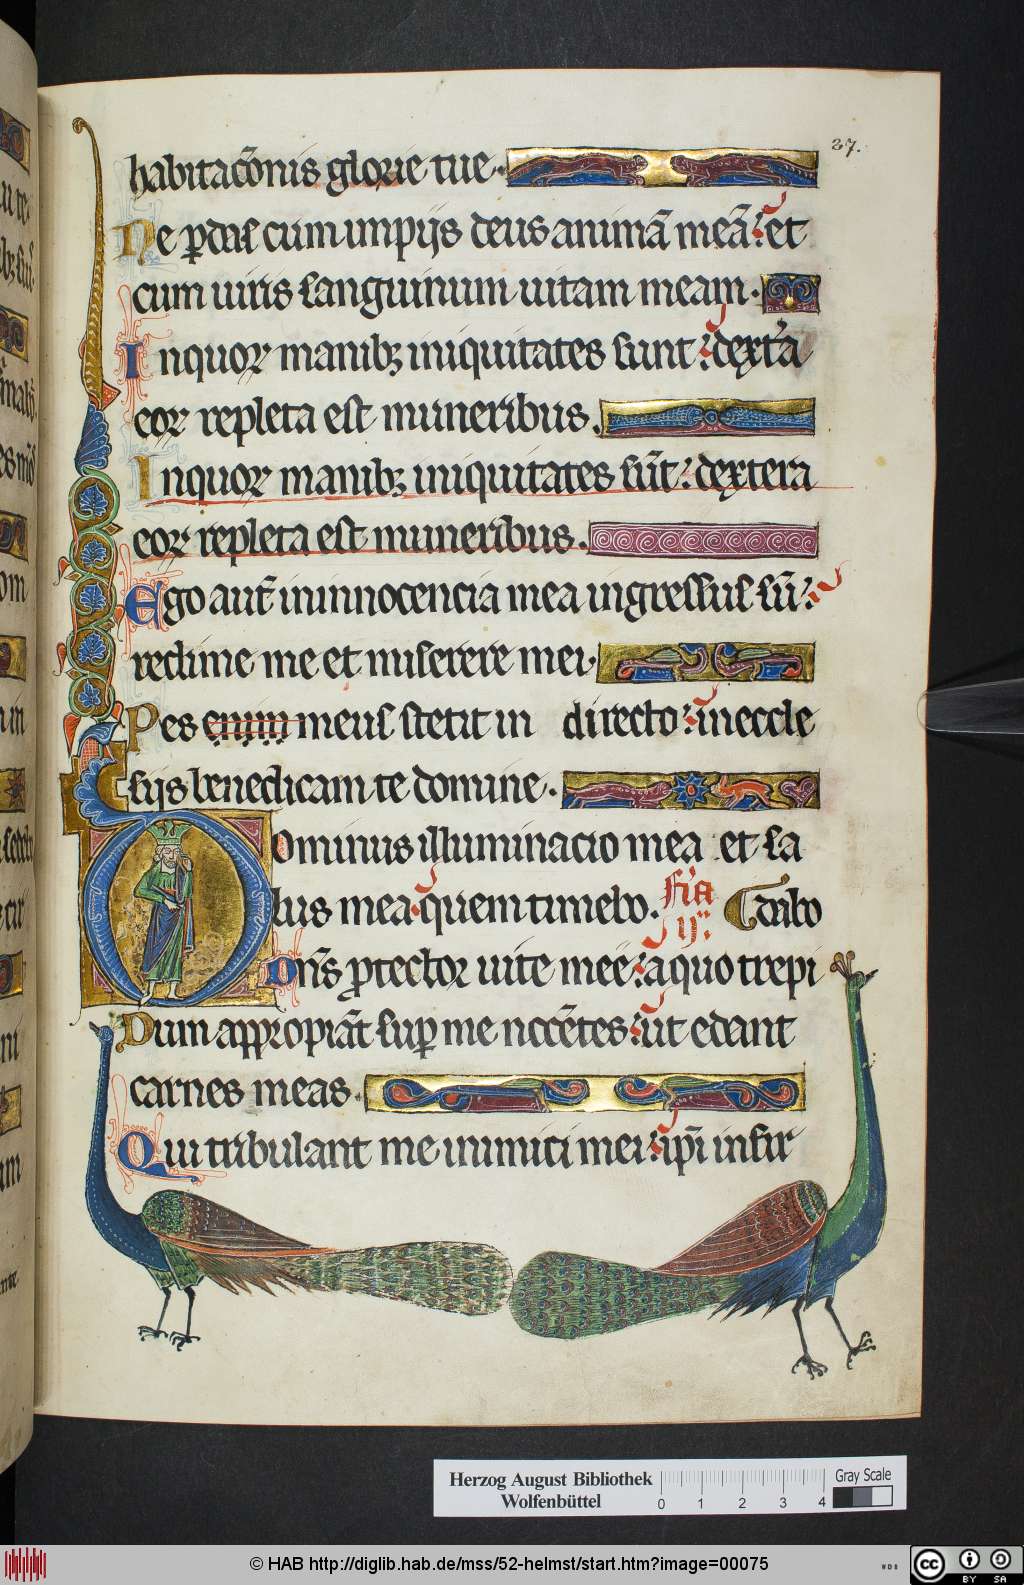 37.
habitac̄onis glorie tue.
Ne ꝑdas cum impijs deus animā meā: et
cum uiris sanguinum uitam meam.
Inquoꝝ manibꝫ iniquitates sunt: dext̓a
eoꝝ repleta est muneribus.
Inquoꝝ manibꝫ iniquitates sūt: dextera
eoꝝ repleta est muneribus.
Ego aut̄ ininnocencia mea ingressus sū:
redime me et miserere mei.
Pes enim meus stetit in directo: in eccle
sijs benedicam te domine.
Dominus illuminacio mea et sa
lus mea. quem timebo. Fr̄ia ij.
Dn̄s ꝓtector uite mee: a quo trepi dabo
Dum appropiāt suꝑ me nocētes: ut edant
carnes meas.
Qui tribulant me inimici mei: ip̄i infir
Herzog August Bibliothek
Wolfenbüttel
0 1 2 3 4
Gray Scale
© HAB http://diglib.hab.de/mss/52-helmst/start.htm?image=00075
WDB
cc BY SA